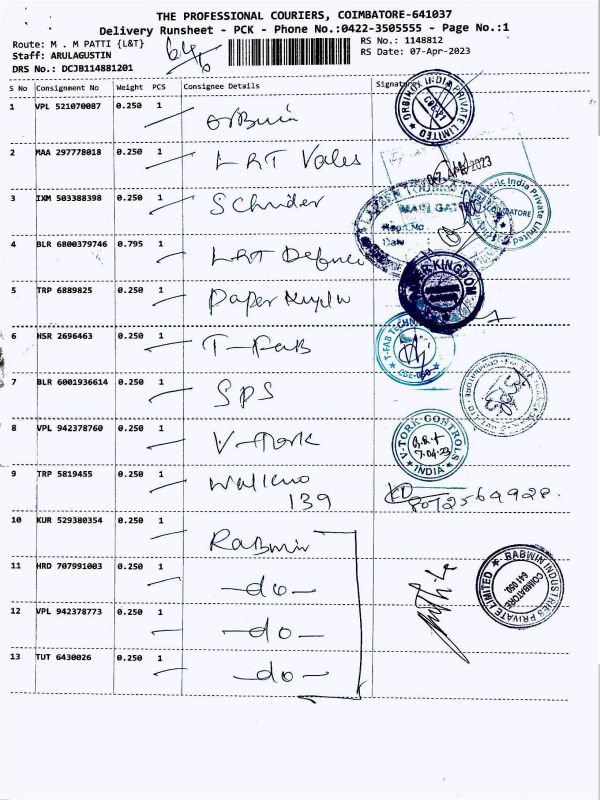 THE PROFESSIONAL COURIERS, COIMBATORE-641037
Delivery Runsheet - PCK - Phone No.:0422-3505555 - Page No.:1
Route: M . M PATTI {L&T} RS No.: 1148812
Staff: ARULAGUSTIN RS Date: 07-Apr-2023
DRS No.: DCJB114881201
S No Consignment No Weight PCS Consignee Details Signature
1 VPL 521070087 0.250 1
ORBINOX INDIA PRIVATE LIMITED
2 MAA 297778018 0.250 1 L&T Valves
07 APR 2023
3 IXM 503388398 0.250 1
India Private Limited
COIMBATORE
MAIN GATE
Date
4 BLR 6800379746 0.795 1 L&T Defence
5 TRP 6889825 0.250 1 Paper
KINGDOM
6 HSR 2696463 0.250 1 T-FAB
T-FAB
7 BLR 6001936614 0.250 1 SPS
COIMBATORE
8 VPL 942378760 0.250 1 V-Tork
V-TORK CONTROLS
INDIA
9 TRP 5819455 0.250 1
139
10 KUR 529380354 0.250 1 Rabwin
11 HRD 707991003 0.250 1 -do-
RABWIN INDUSTRIES PRIVATE LIMITED
COIMBATORE
641 050.
12 VPL 942378773 0.250 1 -do-
13 TUT 6430026 0.250 1 -do-